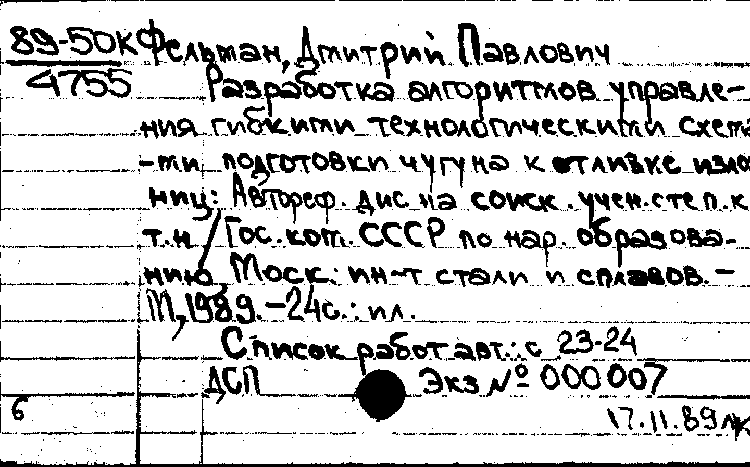 89-50к Фельман, Дмитрий Павлович
4755 Разработка алгоритмов управле-
ния гибкими технологическими схема
-ми подготовки чугуна к отливке изло
ниц: Автореф. дис на соиск. учен. степ. к.
т.н / Гос. ком. СССР по нар. образова-
нию, Моск. ин-т стали и сплавов. -
М, 1989. - 24с.: ил.
Список работ авт.: с 23-24
ДСП Экз № 000007
б
17.11.89